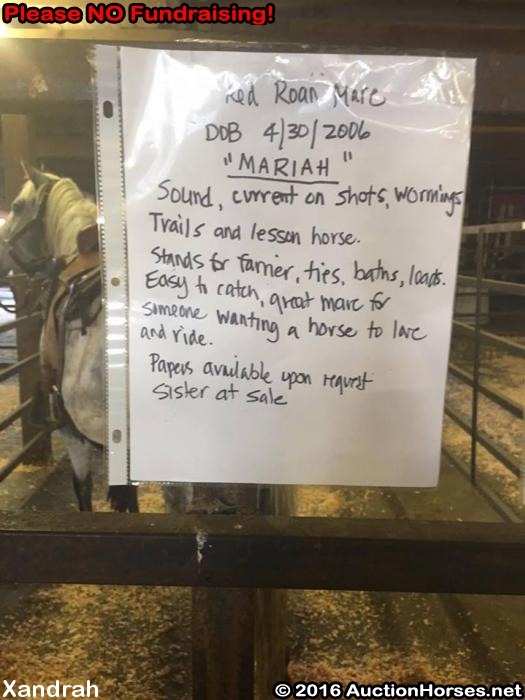 Please NO Fundraising!
Red Roan Mare
DOB 4/30/2006
"MARIAH"
Sound, current on shots, wormings
Trails and lesson horse.
Stands for farrier, ties, baths, loads.
Easy to catch, great mare for
someone wanting a horse to love
and ride.
Papers available upon request
Sister at sale
Xandrah
© 2016 AuctionHorses.net